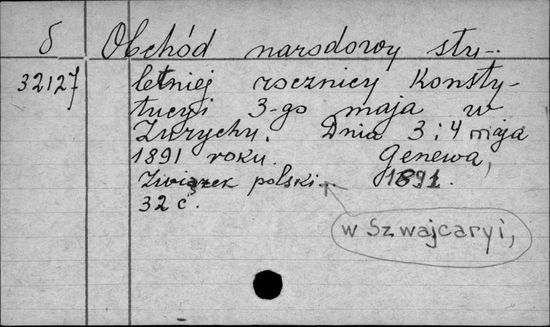 δ Obchód narodowy stu-
32127 letniej rocznicy Konsty-
tucyi 3-go maja w
Zurychu. Dnia 3 i 4 maja
1891 roku. Genewa,
Związek polski 1891.
32 c.
w Szwajcaryi,